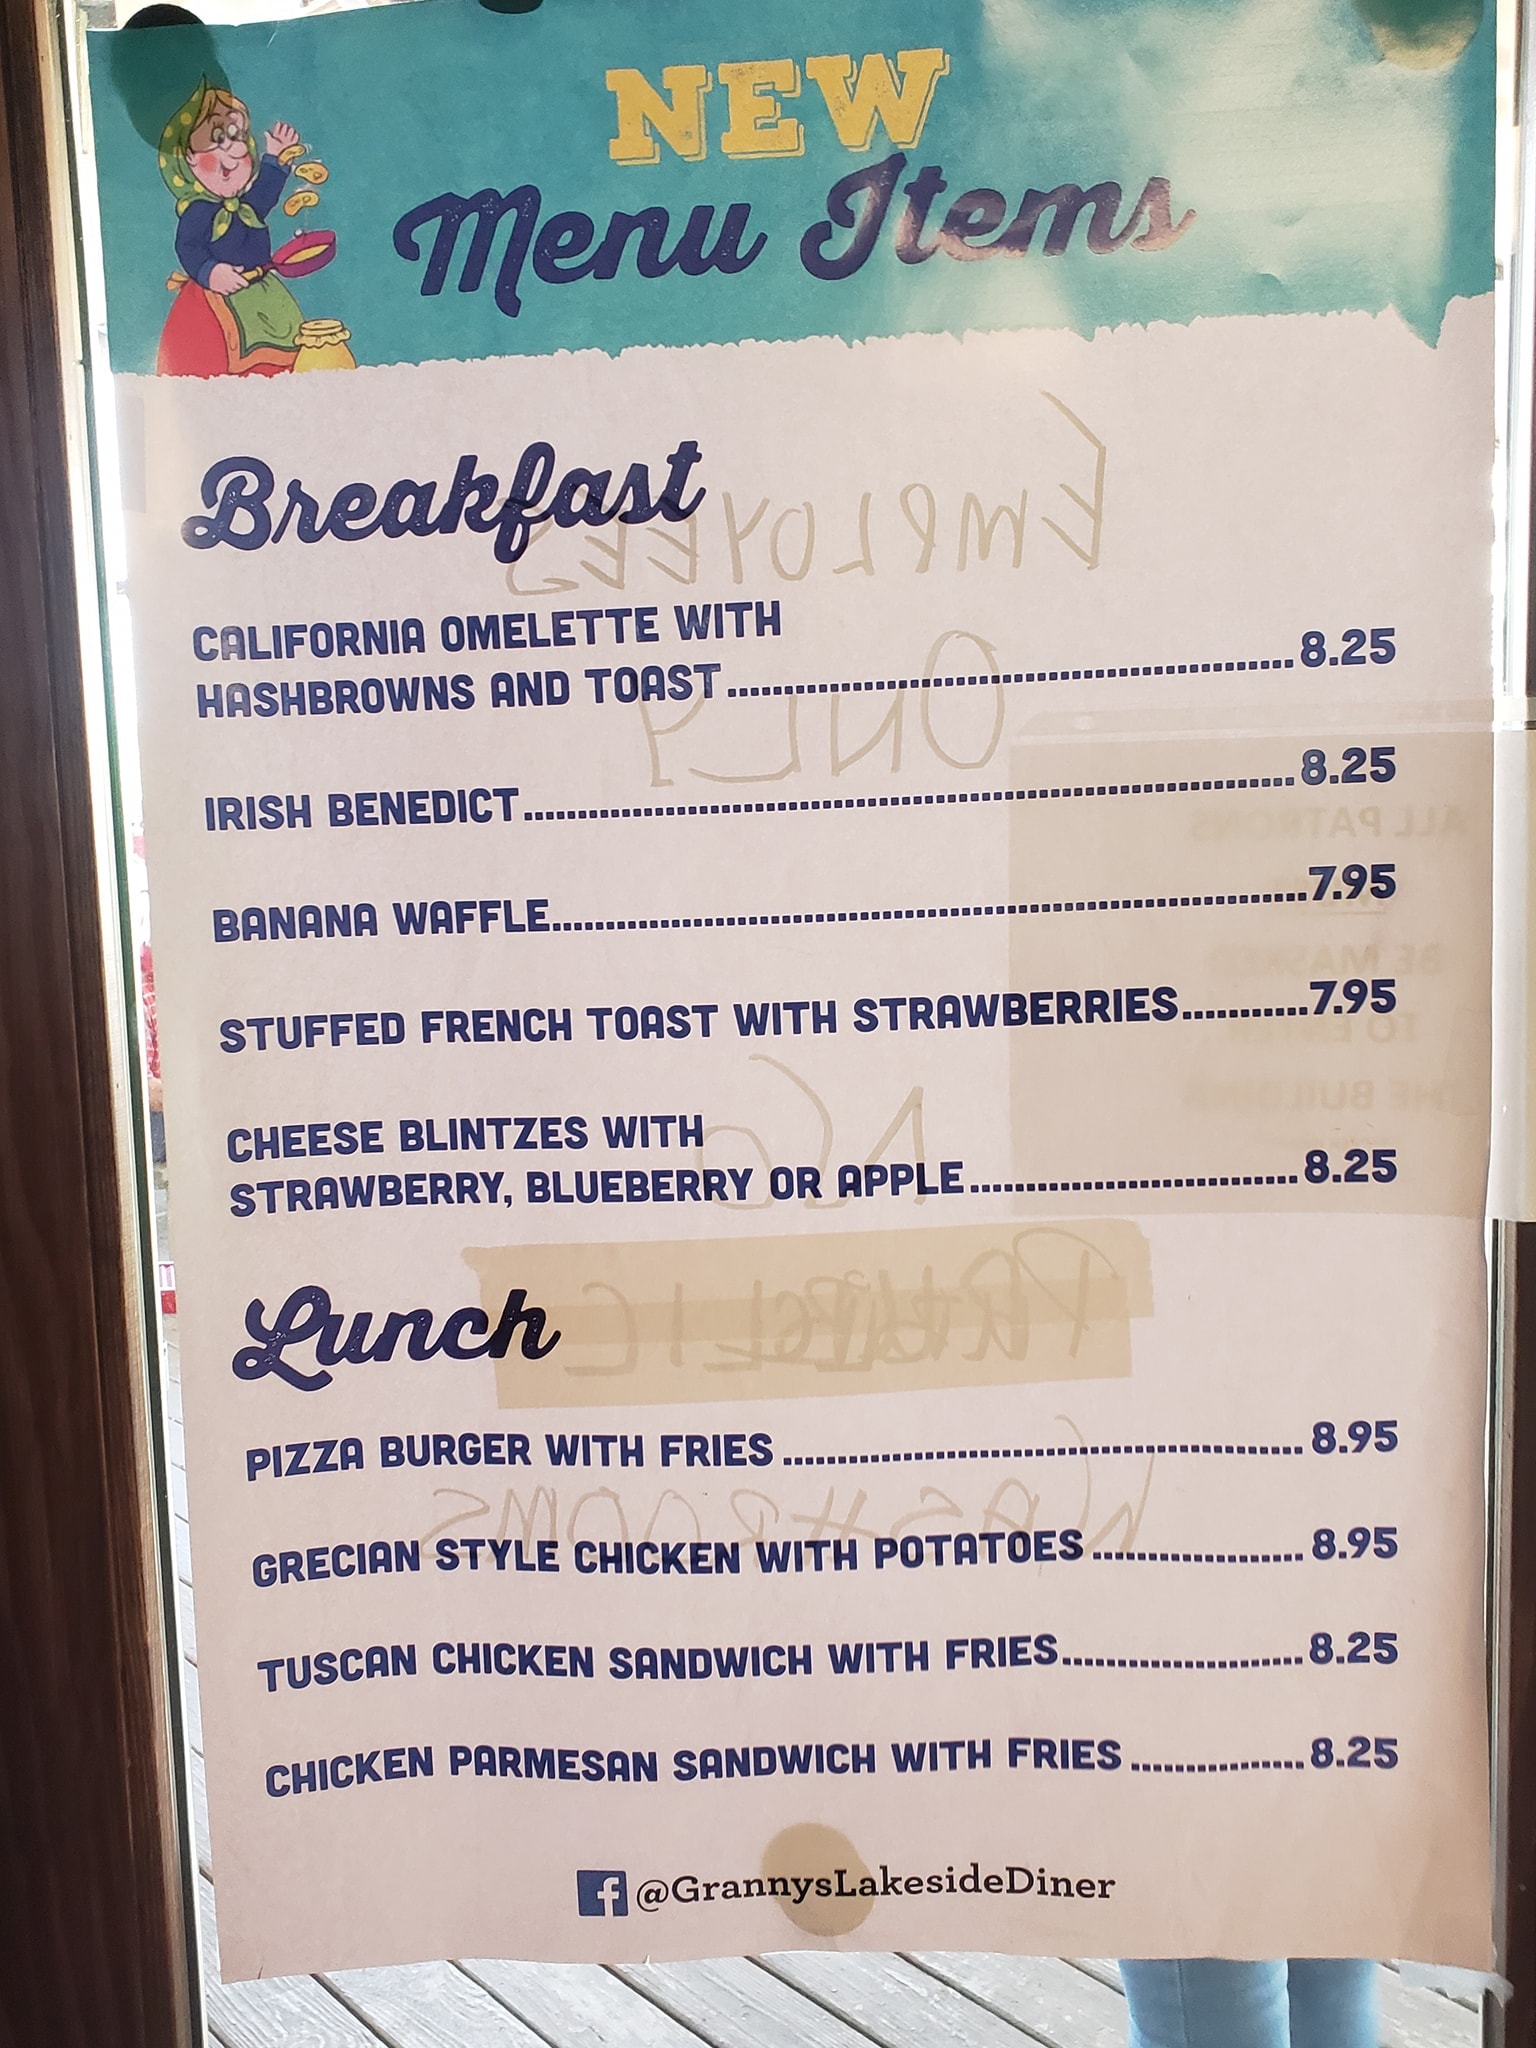 NEW
Menu Items
Breakfast
EMPLOYEES
CALIFORNIA OMELETTE WITH
HASHBROWNS AND TOAST........8.25
ONLY
IRISH BENEDICT........8.25
ALL PATRONS
BANANA WAFFLE........7.95
BE MASKED
STUFFED FRENCH TOAST WITH STRAWBERRIES........7.95
TO ENTER
THE BUILDING
NO
CHEESE BLINTZES WITH
STRAWBERRY, BLUEBERRY OR APPLE........8.25
Lunch
PIZZA BURGER WITH FRIES........8.95
WASHROOMS
GRECIAN STYLE CHICKEN WITH POTATOES........8.95
TUSCAN CHICKEN SANDWICH WITH FRIES........8.25
CHICKEN PARMESAN SANDWICH WITH FRIES........8.25
f @GrannysLakesideDiner